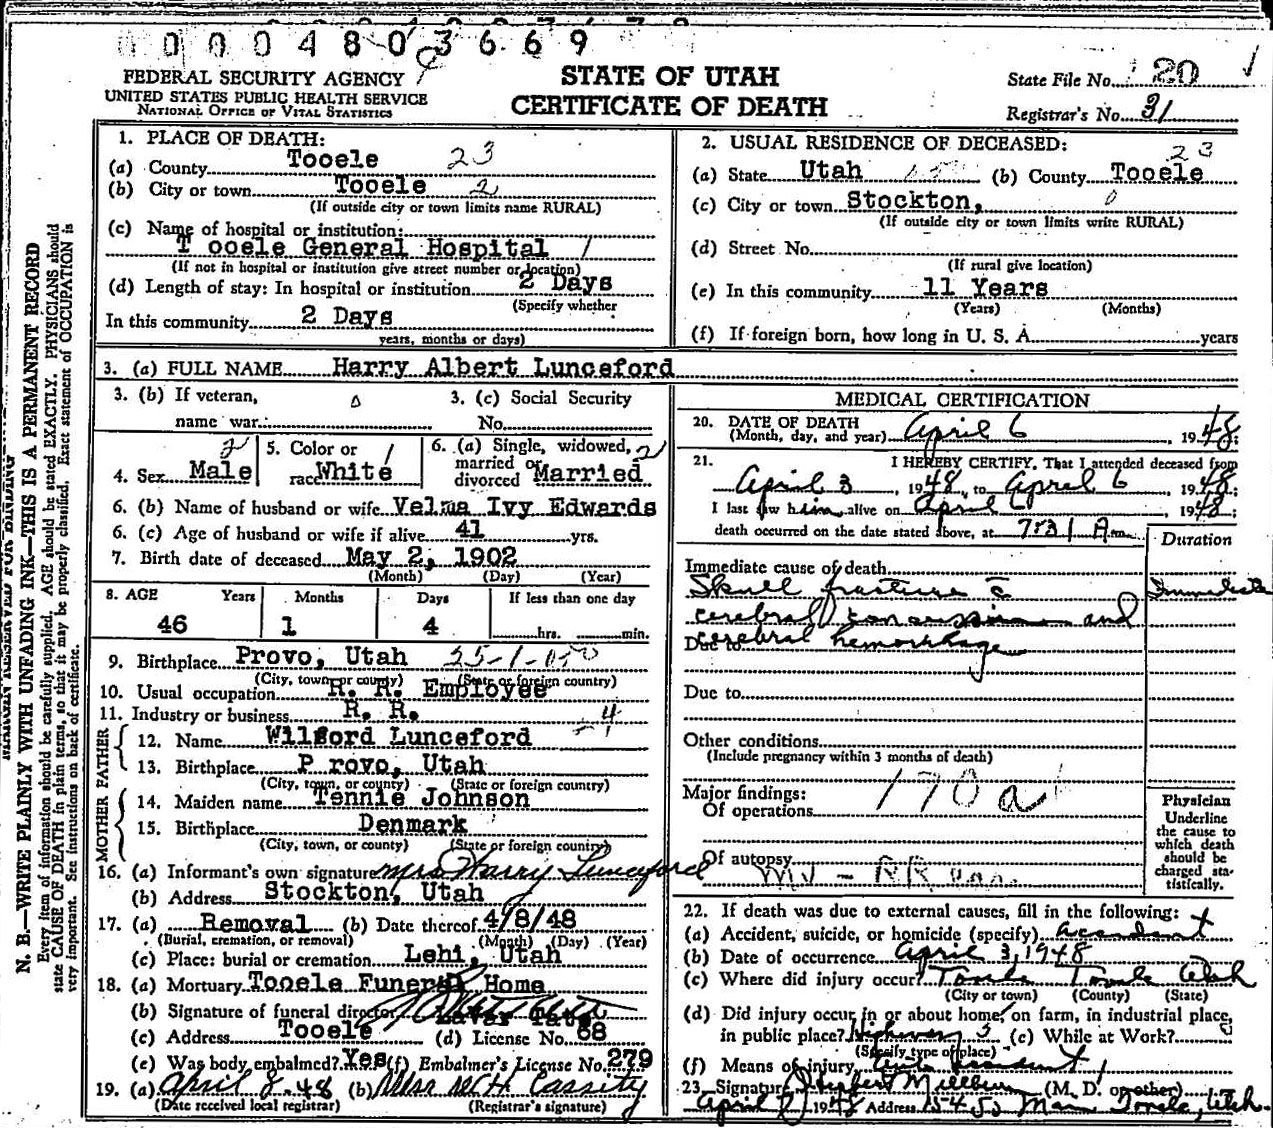 0 0 0 0 4 8 0 3 6 6 9
FEDERAL SECURITY AGENCY
UNITED STATES PUBLIC HEALTH SERVICE
NATIONAL OFFICE OF VITAL STATISTICS
STATE OF UTAH
CERTIFICATE OF DEATH
State File No. 20
Registrar's No. 31
N. B.—WRITE PLAINLY WITH UNFADING INK—THIS IS A PERMANENT RECORD
Every item of information should be carefully supplied. AGE should be stated EXACTLY. PHYSICIANS should
state CAUSE OF DEATH in plain terms, so that it may be properly classified. Exact statement of OCCUPATION is
very important. See instructions on back of certificate.
1. PLACE OF DEATH:
(a) County Tooele 23
(b) City or town Tooele 2
(If outside city or town limits name RURAL)
(c) Name of hospital or institution:
T ooele General Hospital 1
(If not in hospital or institution give street number or location)
(d) Length of stay: In hospital or institution 2 Days
(Specify whether
In this community 2 Days
years, months or days)
2. USUAL RESIDENCE OF DECEASED:
23
(a) State Utah (b) County Tooele
(c) City or town Stockton, 0
(If outside city or town limits write RURAL)
(d) Street No.
(If rural give location)
(e) In this community 11 Years
(Years) (Months)
(f) If foreign born, how long in U. S. A. years
3. (a) FULL NAME Harry Albert Lunceford
3. (b) If veteran, 3. (c) Social Security
name war No.
4. Sex Male 2
5. Color or race White 1
6. (a) Single, widowed, married or divorced Married 2
6. (b) Name of husband or wife Velma Ivy Edwards
6. (c) Age of husband or wife if alive 41 yrs.
7. Birth date of deceased May 2, 1902
(Month) (Day) (Year)
8. AGE Years Months Days If less than one day
46 1 4 hrs. min.
9. Birthplace Provo, Utah
(City, town, or county) (State or foreign country)
10. Usual occupation R. R. Employee
11. Industry or business R. R.
FATHER
12. Name Wilford Lunceford
13. Birthplace P rovo, Utah
(City, town, or county) (State or foreign country)
MOTHER
14. Maiden name Tennie Johnson
15. Birthplace Denmark
(City, town, or county) (State or foreign country)
16. (a) Informant's own signature Mrs Harry Lunceford
(b) Address Stockton, Utah
17. (a) Removal (b) Date thereof 4/8/48
(Burial, cremation, or removal) (Month) (Day) (Year)
(c) Place: burial or cremation Lehi, Utah
18. (a) Mortuary Tooele Funeral Home
(b) Signature of funeral director
(c) Address Tooele (d) License No. 68
(e) Was body embalmed? Yes (f) Embalmer's License No. 279
19. (a) April 8. 48 (b) Cassity
(Date received local registrar) (Registrar's signature)
MEDICAL CERTIFICATION
20. DATE OF DEATH
(Month, day, and year) April 6, 1948;
21. I HEREBY CERTIFY, That I attended deceased from
April 3, 1948, to April 6, 1948;
I last saw him alive on April 6, 1948;
death occurred on the date stated above, at 7:31 A m.
Duration
Immediate cause of death
Skull fracture c̄ Immediate
cerebral concussion and
Due to cerebral hemorrhage
Due to
Other conditions
(Include pregnancy within 3 months of death)
Major findings: 170a
Of operations
Of autopsy
Physician
Underline
the cause to
which death
should be
charged sta-
tistically.
22. If death was due to external causes, fill in the following:
(a) Accident, suicide, or homicide (specify) accident
(b) Date of occurrence April 3, 1948
(c) Where did injury occur? Tooele Tooele Utah
(City or town) (County) (State)
(d) Did injury occur in or about home, on farm, in industrial place,
in public place? Highway (e) While at Work?
(Specify type of place)
(f) Means of injury Auto accident
23. Signature J Herbert Millburn (M. D. or other)
April 7, 1948 Address Main Tooele, Utah.